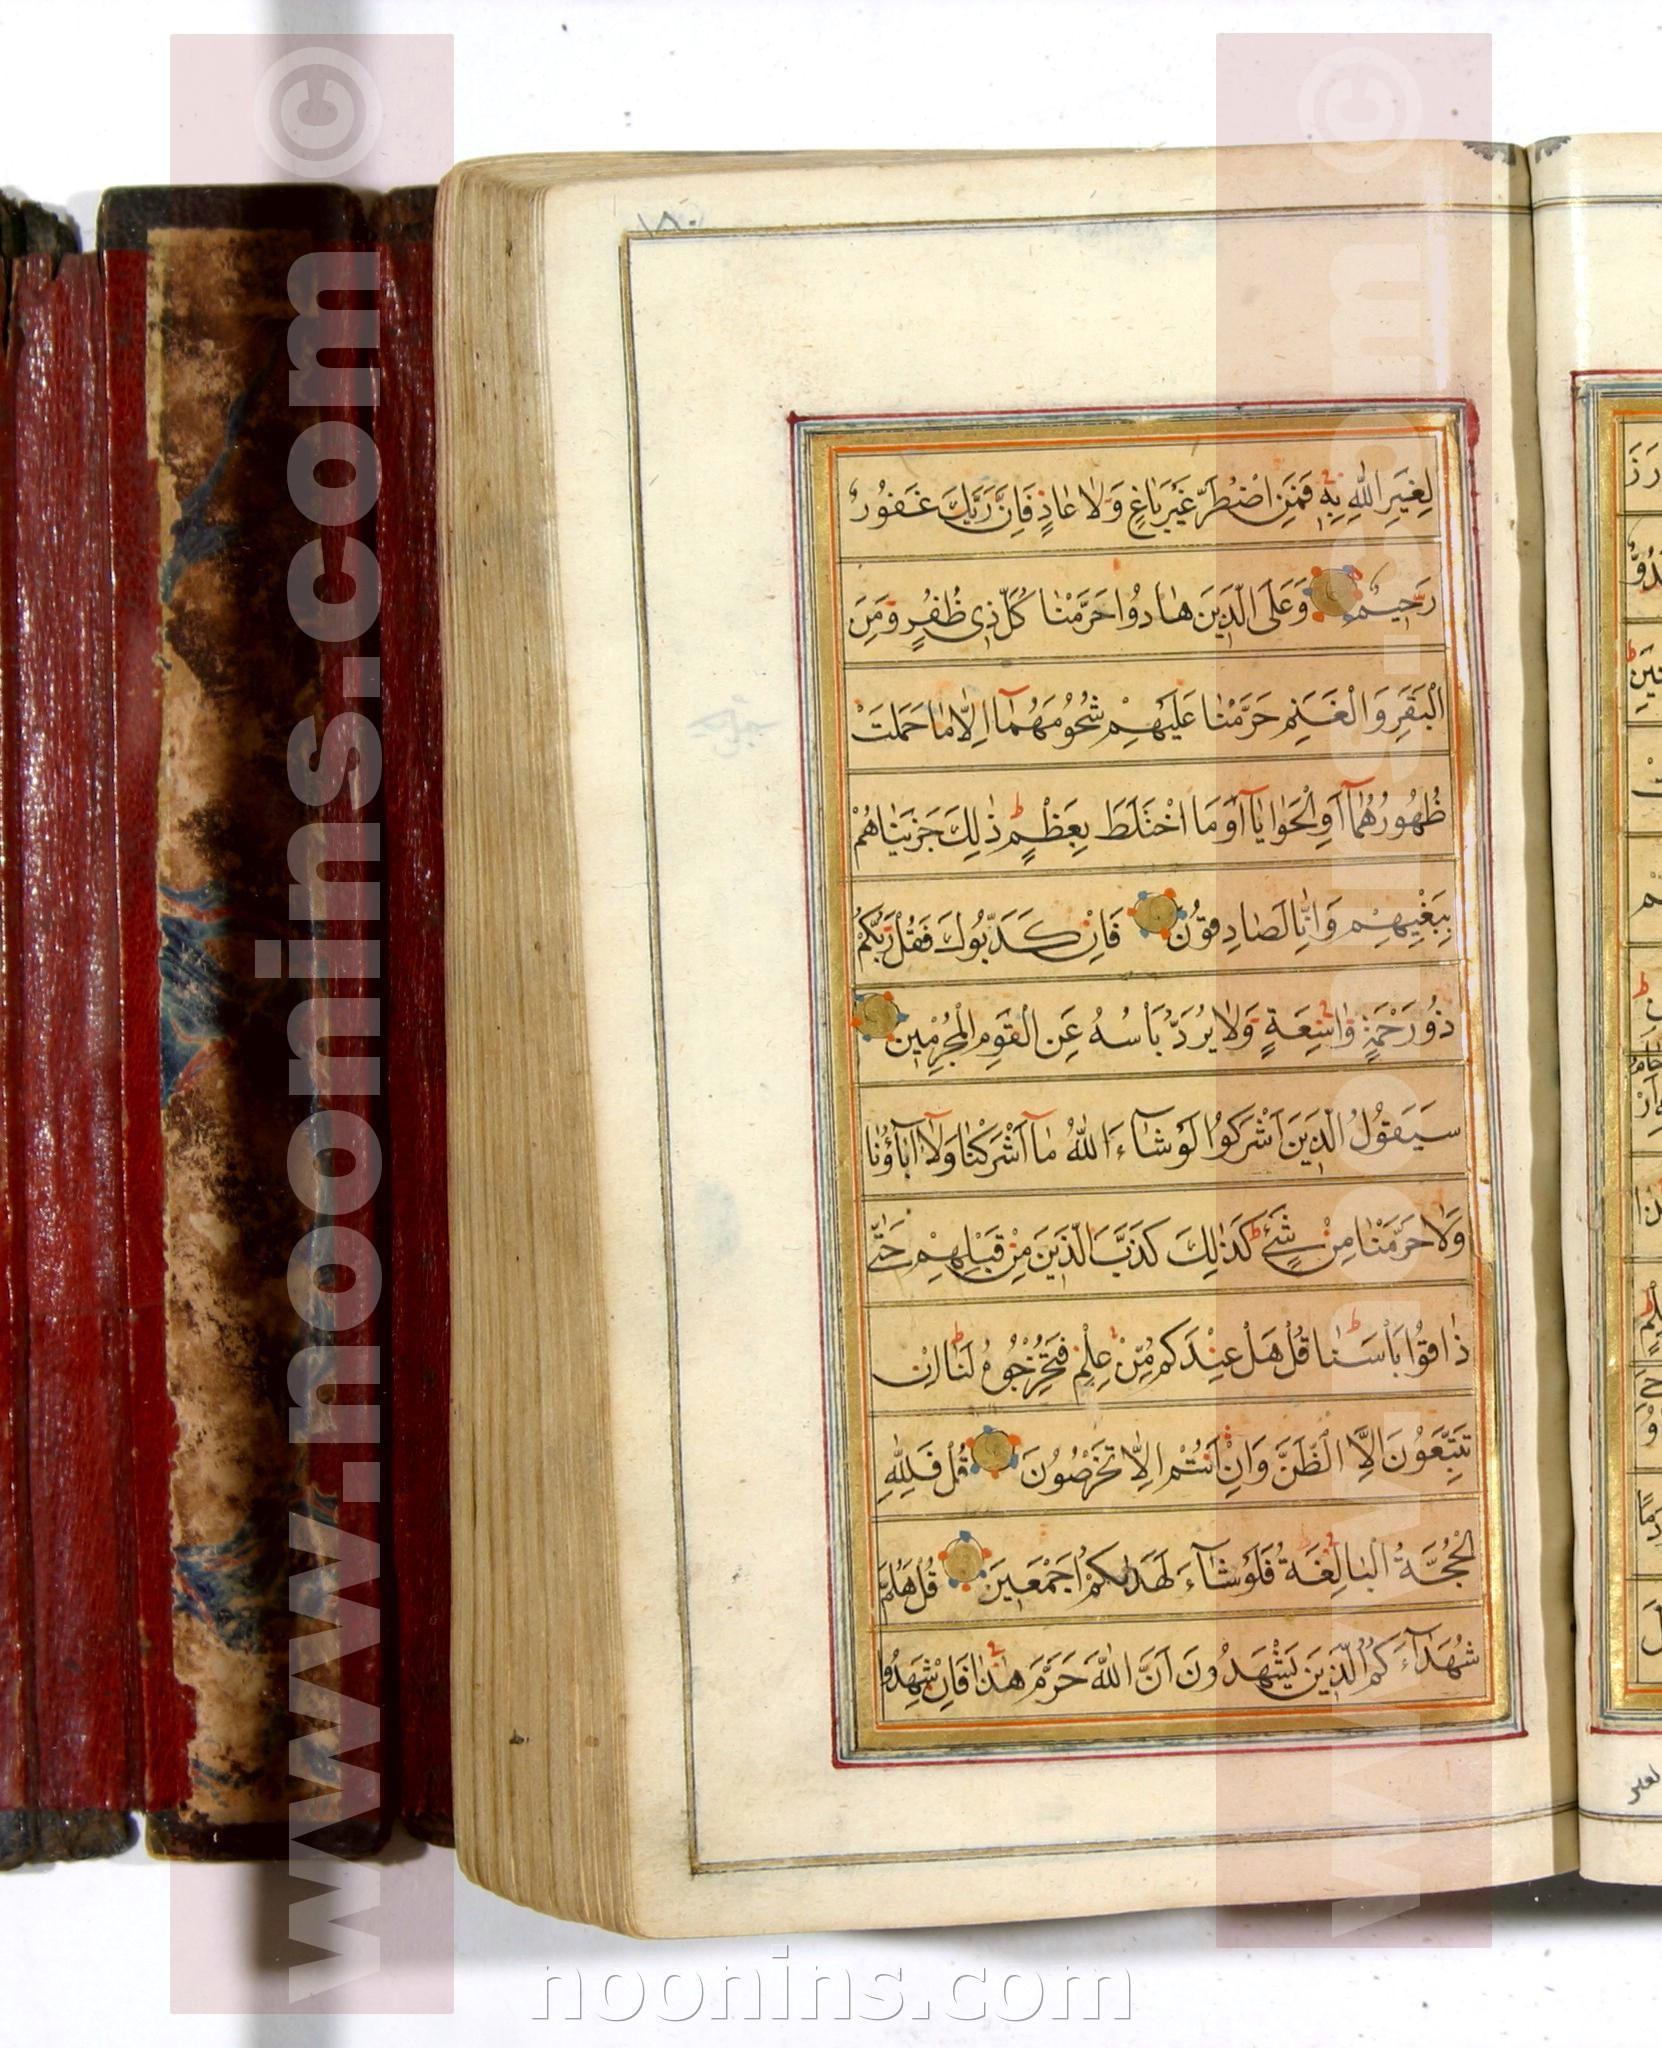 ١٨٠
لِغَيْرِ اللّٰهِ بِهِ فَمَنِ اضْطُرَّ غَيْرَ بَاغٍ وَلَا عَادٍ فَاِنَّ رَبَّكَ غَفُورٌ
رَحِيمٌ وَعَلَى الَّذِينَ هَادُوا حَرَّمْنَا كُلَّ ذِي ظُفُرٍ وَمِنَ
الْبَقَرِ وَالْغَنَمِ حَرَّمْنَا عَلَيْهِمْ شُحُومَهُمَآ اِلَّا مَا حَمَلَتْ
ظُهُورُهُمَآ اَوِ الْحَوَايَآ اَوْ مَا اخْتَلَطَ بِعَظْمٍ ذٰلِكَ جَزَيْنَاهُمْ
بِبَغْيِهِمْ وَاِنَّا لَصَادِقُونَ فَاِنْ كَذَّبُوكَ فَقُلْ رَبُّكُمْ
ذُو رَحْمَةٍ وَاسِعَةٍ وَلَا يُرَدُّ بَاْسُهُ عَنِ الْقَوْمِ الْمُجْرِمِينَ
سَيَقُولُ الَّذِينَ اَشْرَكُوا لَوْ شَآءَ اللّٰهُ مَآ اَشْرَكْنَا وَلَآ اٰبَآؤُنَا
وَلَا حَرَّمْنَا مِنْ شَيْءٍ كَذٰلِكَ كَذَّبَ الَّذِينَ مِنْ قَبْلِهِمْ حَتّٰى
ذَاقُوا بَاْسَنَا قُلْ هَلْ عِنْدَكُمْ مِنْ عِلْمٍ فَتُخْرِجُوهُ لَنَا اِنْ
تَتَّبِعُونَ اِلَّا الظَّنَّ وَاِنْ اَنْتُمْ اِلَّا تَخْرُصُونَ قُلْ فَلِلّٰهِ
الْحُجَّةُ الْبَالِغَةُ فَلَوْ شَآءَ لَهَدٰيكُمْ اَجْمَعِينَ قُلْ هَلُمَّ
شُهَدَآءَكُمُ الَّذِينَ يَشْهَدُونَ اَنَّ اللّٰهَ حَرَّمَ هٰذَا فَاِنْ شَهِدُوا
www.noonins.com ©
www.noonins.com ©
noonins.com